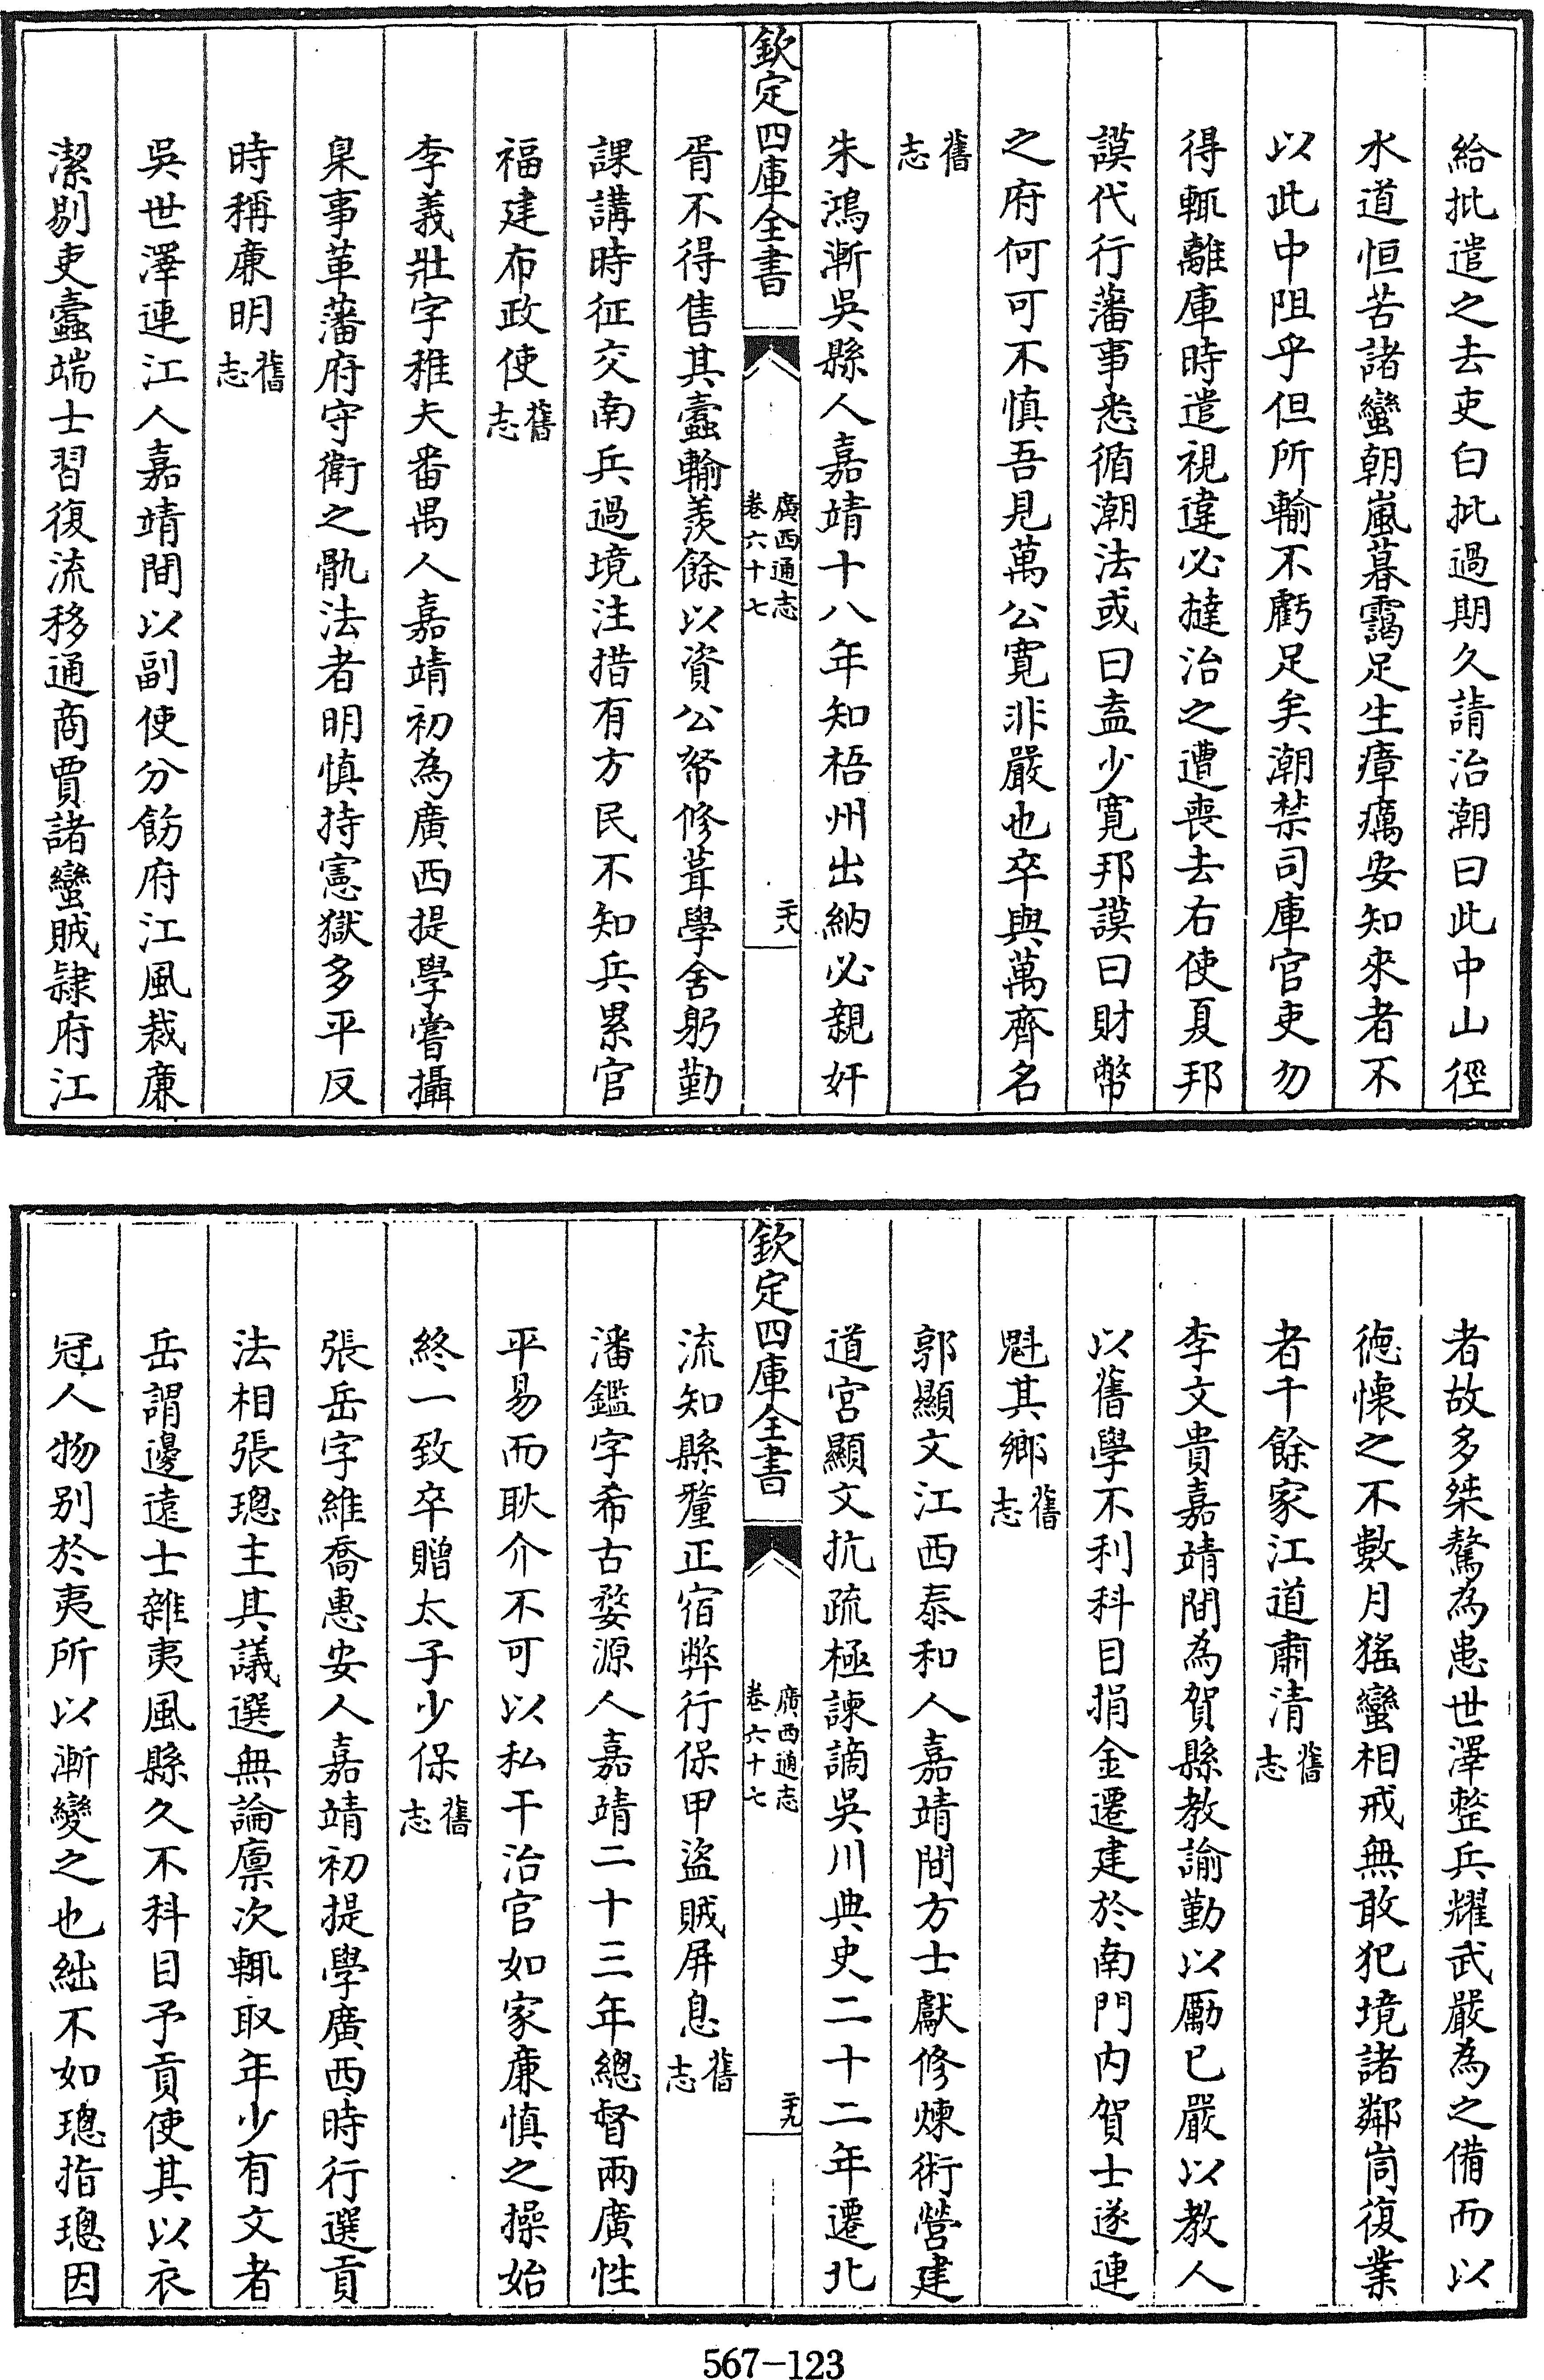 給批遣之去吏白批過期久請治潮曰此中山徑
水道恒苦諸蠻朝嵐暮靄足生瘴癘安知來者不
以此中阻乎但所輸不虧足矣潮禁司庫官吏勿
得輒離庫時遣視違必撻治之遭喪去右使夏邦
謨代行藩事悉循潮法或曰盍少寛邦謨曰財幣
之府何可不慎吾見萬公寛非嚴也卒與萬齊名
舊志
朱鴻漸吳縣人嘉靖十八年知梧州出納必親奸
欽定四庫全書
廣西通志
卷六十七
二十八
胥不得售其蠹輸羨餘以資公帑修葺學舍躬勤
課講時征交南兵過境注措有方民不知兵累官
福建布政使舊志
李義壯字稚夫番禺人嘉靖初為廣西提學嘗攝
臬事革藩府守衛之骫法者明慎持憲獄多平反
時稱廉明舊志
吳世澤連江人嘉靖間以副使分飭府江風裁廉
潔剔吏蠹端士習復流移通商賈諸蠻賊隸府江
者故多桀驁為患世澤整兵耀武嚴為之備而以
徳懷之不數月猺蠻相戒無敢犯境諸鄰峝復業
者千餘家江道肅清舊志
李文貴嘉靖間為賀縣教諭勤以勵已嚴以教人
以舊學不利科目捐金遷建於南門内賀士遂連
魁其鄉舊志
郭顯文江西泰和人嘉靖間方士獻修煉術營建
道宮顯文抗疏極諫謫吳川典史二十二年遷北
欽定四庫全書
廣西通志
卷六十七
二十九
流知縣釐正宿弊行保甲盜賊屏息舊志
潘鑑字希古婺源人嘉靖二十三年總督兩廣性
平易而耿介不可以私干治官如家廉慎之操始
終一致卒贈太子少保舊志
張岳字維喬惠安人嘉靖初提學廣西時行選貢
法相張璁主其議選無論廩次輒取年少有文者
岳謂邊遠士雜夷風縣久不科目予貢使其以衣
冠人物别於夷所以漸變之也絀不如璁指璁因
567-123